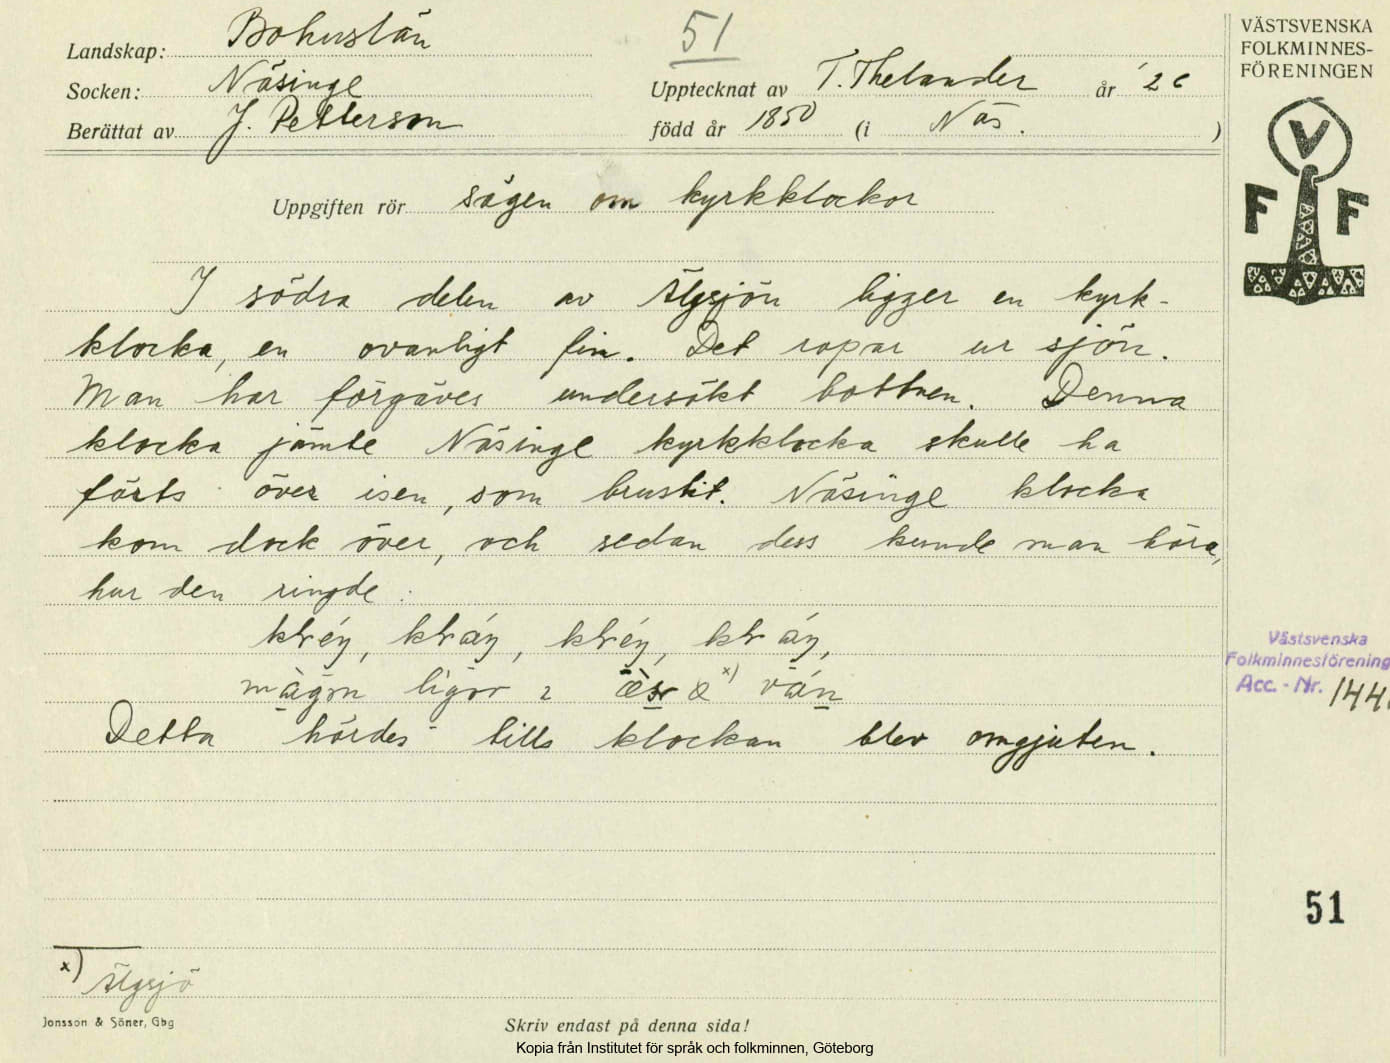 Landskap: Bohuslän
51
VÄSTSVENSKA
FOLKMINNES-
FÖRENINGEN
Socken: Näsinge
Upptecknat av T. Thelander år '26
Berättat av J. Petterson
född år 1850 (i Näs. )
V
F F
Uppgiften rör sägen om kyrkklockor
I södra delen av Älgsjön ligger en kyrk-
klocka, en ovanligt fin. Det ropar ur sjön.
Man har förgäves undersökt bottnen. Denna
klocka jämte Näsinge kyrkklocka skulle ha
förts över isen, som brustit. Näsinge klocka
kom dock över, och sedan dess kunde man höra,
hur den ringde:
vän
Detta hördes tills klockan blev omgjuten.
Västsvenska
Folkminnesförening
Acc. - Nr. 144
51
x) Älgsjö
Jonsson & Söner, Gbg
Skriv endast på denna sida!
Kopia från Institutet för språk och folkminnen, Göteborg